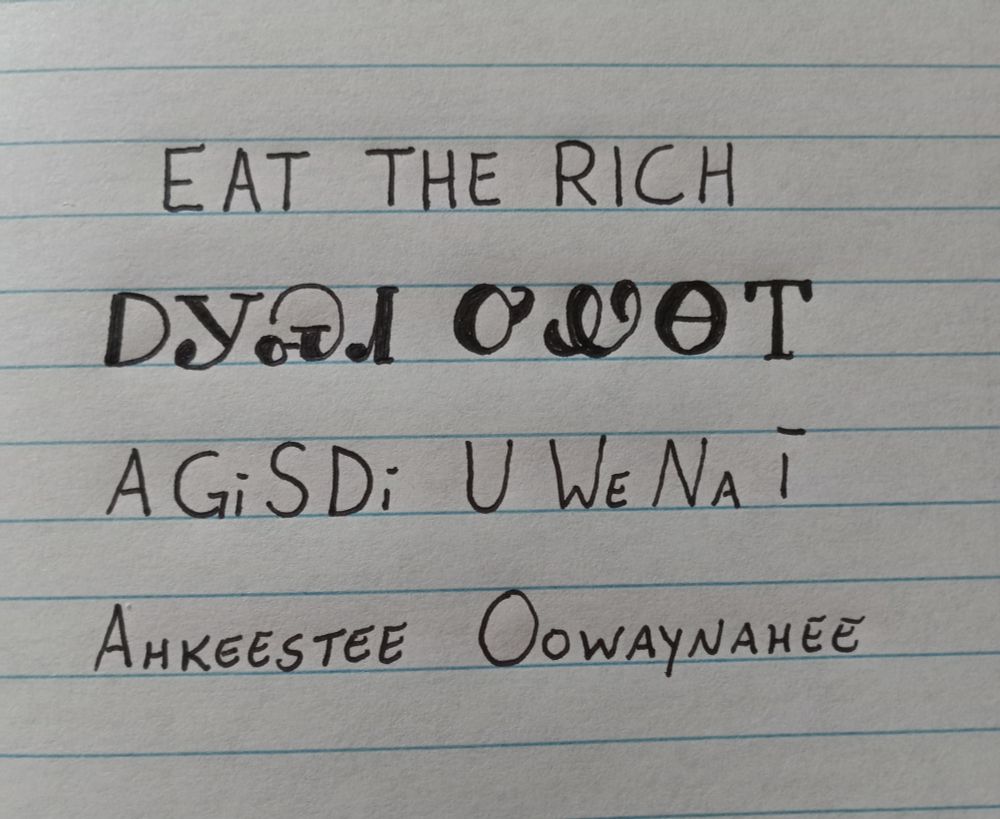 EAT THE RICH
ᎠᎩᏍᏗ ᎤᏪᎾᎢ
A GiSDi U WeNA Ī
AHKEESTEE OOWAYNAHĒĒ